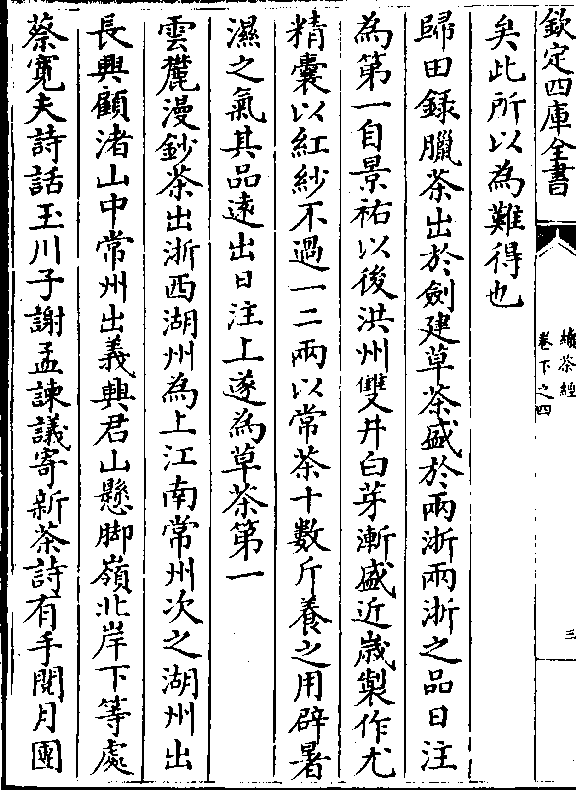 欽定四庫全書
續茶經
卷下之四
三
矣此所以為難得也
歸田錄臘茶出於劍建草茶盛於兩浙兩浙之品日注
為第一自景祐以後洪州雙井白芽漸盛近嵗製作尤
精囊以紅紗不過一二兩以常茶十數斤養之用辟暑
濕之氣其品逺出日注上遂為草茶第一
雲麓漫鈔茶出浙西湖州為上江南常州次之湖州出
長興顧渚山中常州出義興君山懸脚嶺北岸下等處
蔡寛夫詩話玉川子謝孟諫議寄新茶詩有手閱月團